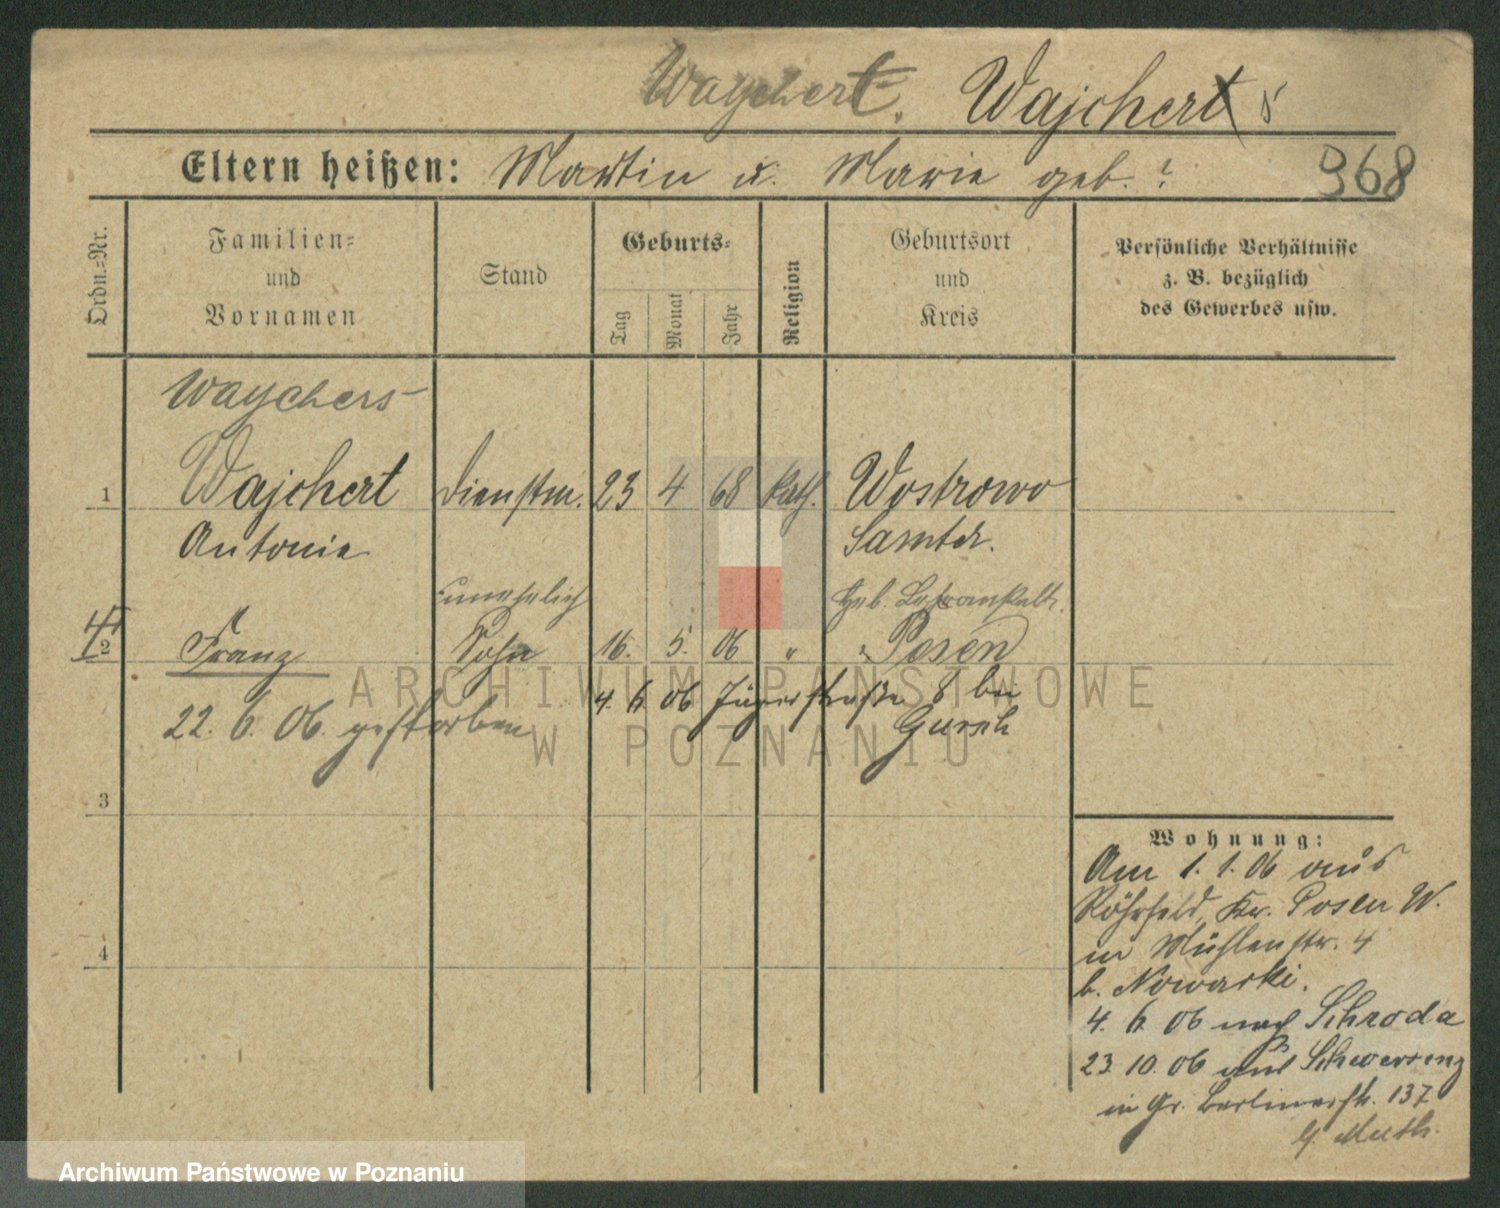 Waychert. Wajchert s
Eltern heißen: Martin u. Marie geb. ?
968
Ordn.=Nr.
Familien=
und
Vornamen
Stand
Geburts=
Tag
Monat
Jahr
Religion
Geburtsort
und
Kreis
Persönliche Verhältnisse
z. B. bezüglich
des Gewerbes usw.
Waychers
1 Wajchert Dienstm. 23 4 68 kath. Wostrowo
Antonie Samter.
unehelich Heb. Lehranstalt.
2 Franz Sohn 16. 5. 06 " Posen
4. 6. 06 Jägerstraße 8 bei
22. 6. 06. gestorben
3
4
Wohnung:
Am 1. 1. 06 aus
Röhrfeld, Kr. Posen W.
in Mühlenstr. 4
b. Nowacki.
4. 6. 06 nach Schroda
23. 10. 06 aus Schwersenz
in Gr. Berlinerstr. 137
b. Muth.
ARCHIWUM PAŃSTWOWE
W POZNANIU
Archiwum Państwowe w Poznaniu